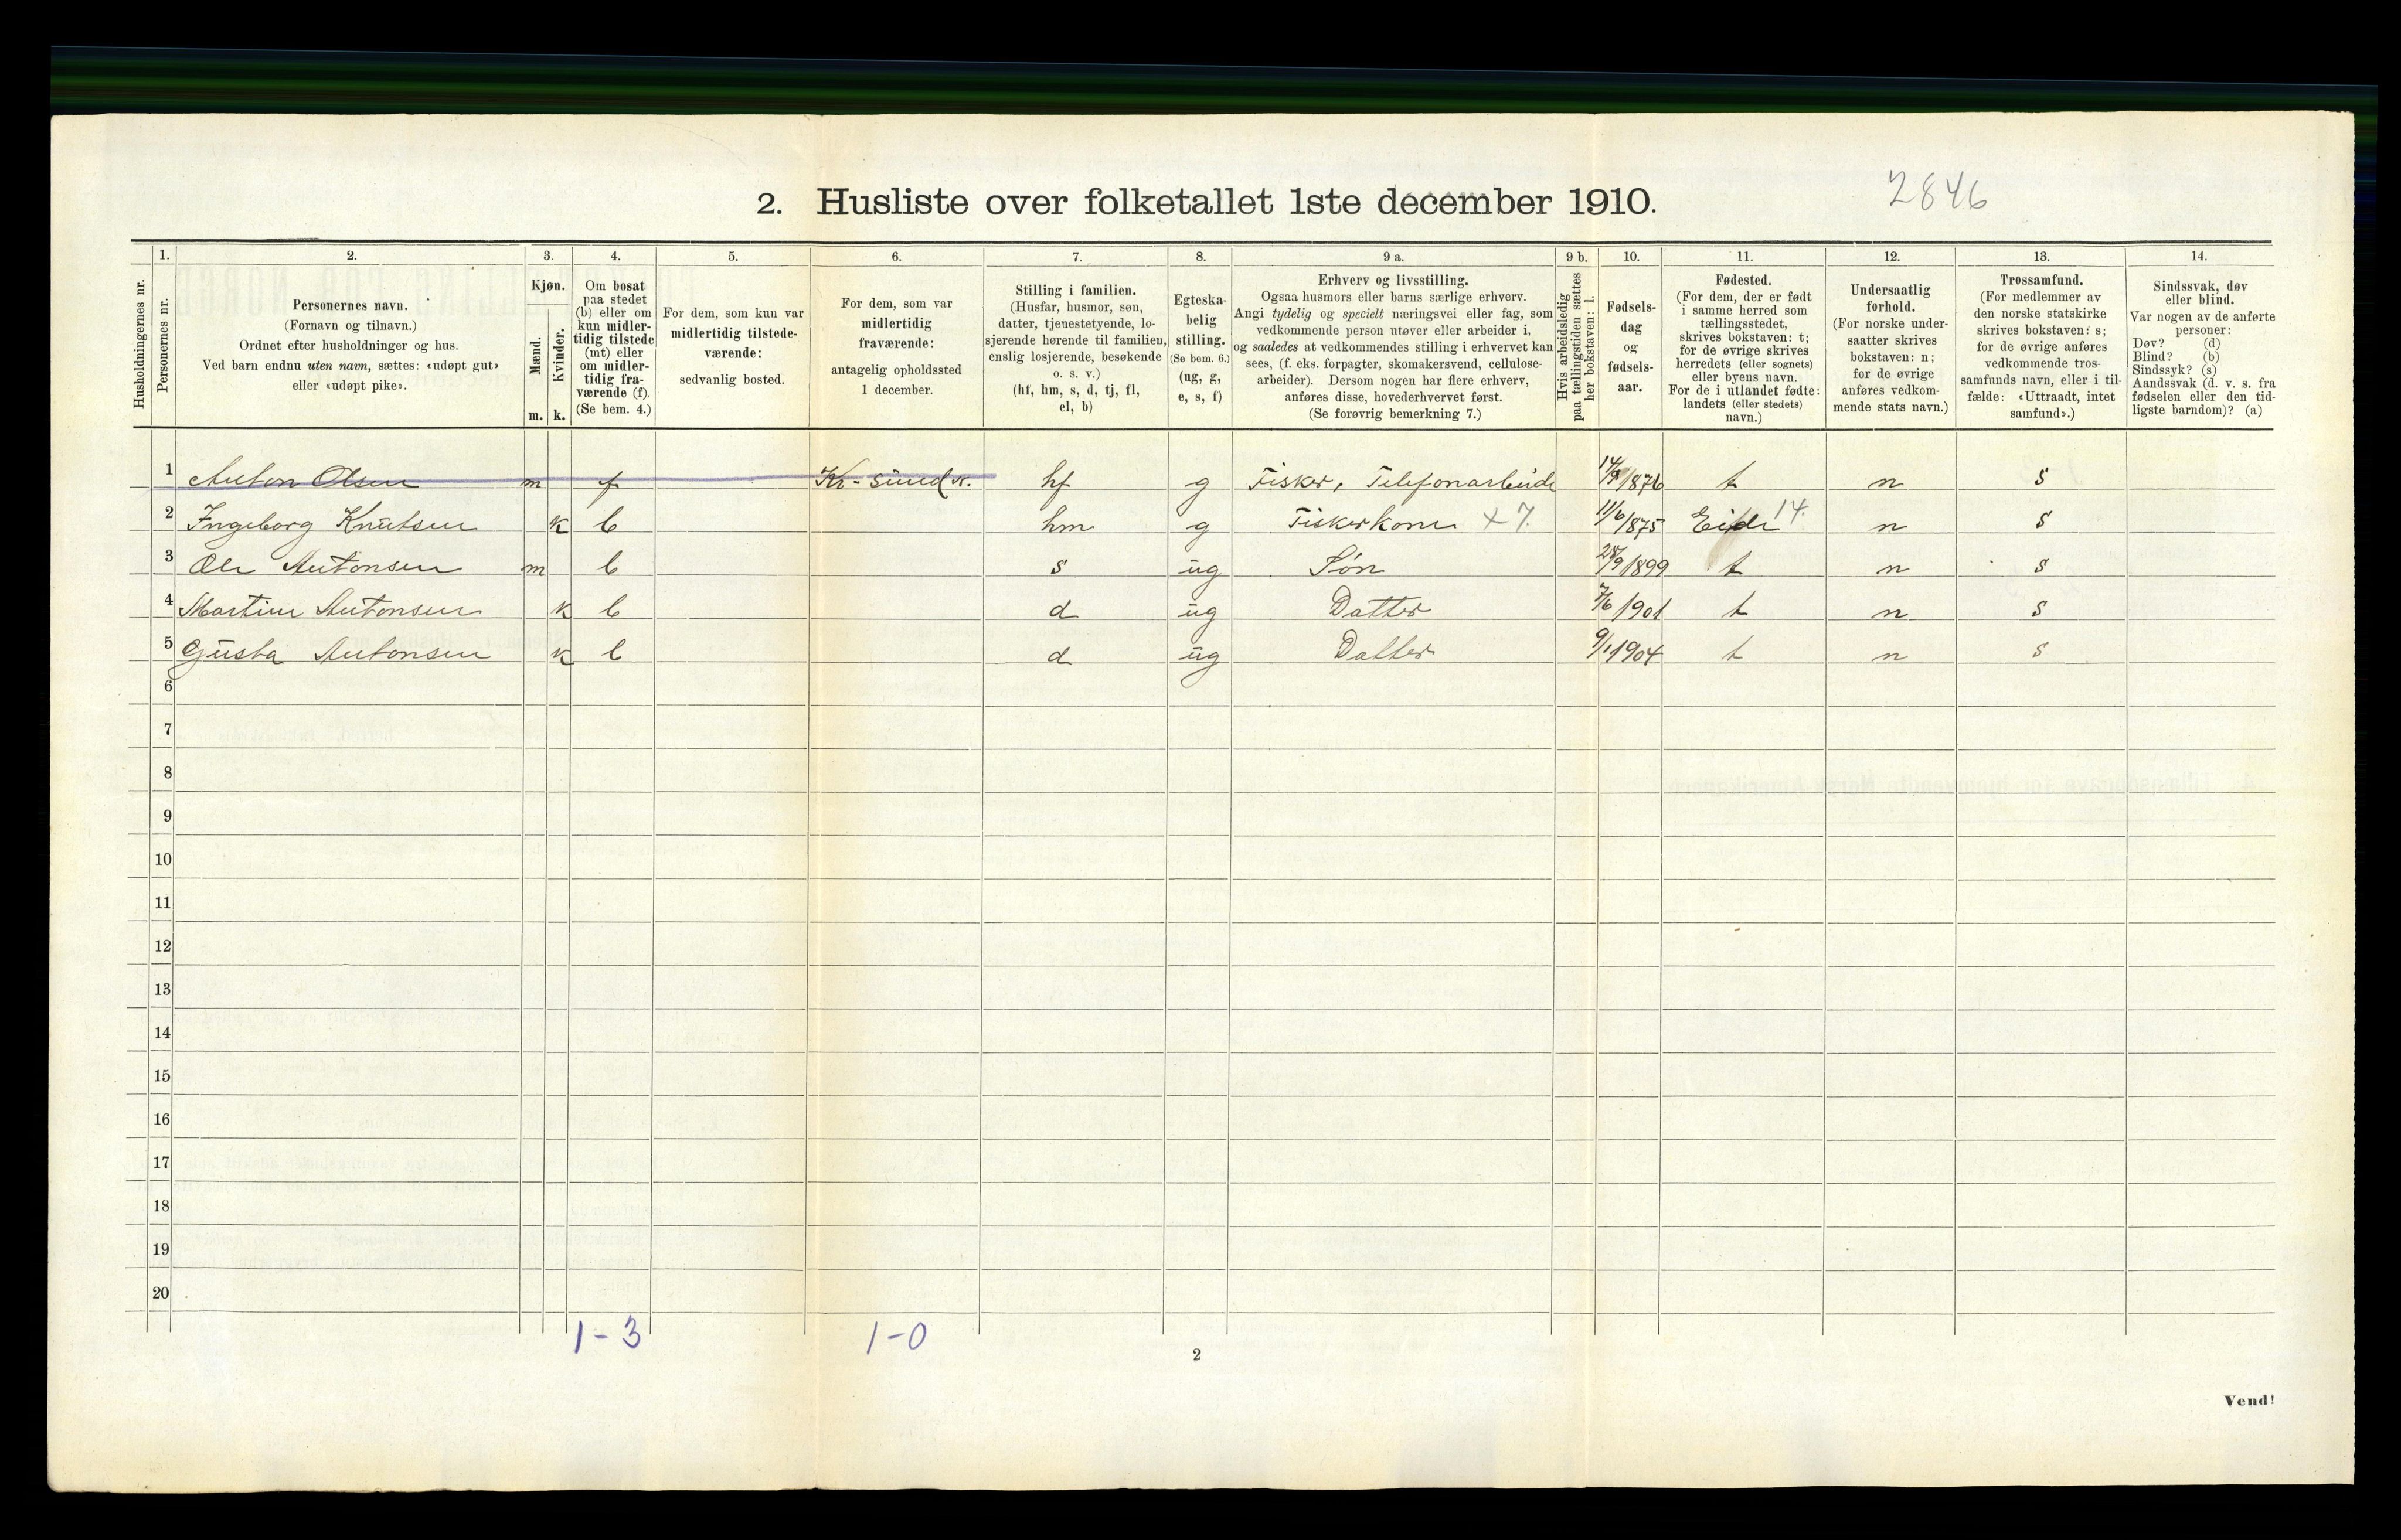 2846
2. Husliste over folketallet 1ste december 1910.
Husholdningernes nr.
1.
Personernes nr.
2.
Personernes navn.
(Fornavn og tilnavn.)
Ordnet efter husholdninger og hus.
Ved barn endnu uten navn, sættes: «udøpt gut»
eller «udøpt pike».
3.
Kjøn.
Mænd.
Kvinder.
m. k.
4.
Om bosat
paa stedet
(b) eller om
kun midler-
tidig tilstede
(mt) eller
om midler-
tidig fra-
værende (f).
(Se bem. 4.)
5.
For dem, som kun var
midlertidig tilstede-
værende:
sedvanlig bosted.
6.
For dem, som var
midlertidig
fraværende:
antagelig opholdssted
1 december.
7.
Stilling i familien.
(Husfar, husmor, søn,
datter, tjenestetyende, lo-
sjerende hørende til familien,
enslig losjerende, besøkende
o. s. v.)
(hf, hm, s, d, tj, fl,
el, b)
8.
Egteska-
belig
stilling.
(Se bem. 6.)
(ug, g,
e, s, f)
9 a.
Erhverv og livsstilling.
Ogsaa husmors eller barns særlige erhverv.
Angi tydelig og specielt næringsvei eller fag, som
vedkommende person utøver eller arbeider i,
og saaledes at vedkommendes stilling i erhvervet kan
sees, (f. eks. forpagter, skomakersvend, cellulose-
arbeider). Dersom nogen har flere erhverv,
anføres disse, hovederhvervet først.
(Se forøvrig bemerkning 7.)
9 b.
Hvis arbeidsledig
paa tællingstiden sættes
her bokstaven: l.
10.
Fødsels-
dag
og
fødsels-
aar.
11.
Fødested.
(For dem, der er født
i samme herred som
tællingsstedet,
skrives bokstaven: t;
for de øvrige skrives
herredets (eller sognets)
eller byens navn.
For de i utlandet fødte:
landets (eller stedets)
navn.)
12.
Undersaatlig
forhold.
(For norske under-
saatter skrives
bokstaven: n;
for de øvrige
anføres vedkom-
mende stats navn.)
13.
Trossamfund.
(For medlemmer av
den norske statskirke
skrives bokstaven: s;
for de øvrige anføres
vedkommende tros-
samfunds navn, eller i til-
fælde: «Uttraadt, intet
samfund».)
14.
Sindssvak, døv
eller blind.
Var nogen av de anførte
personer:
Døv? (d)
Blind? (b)
Sindssyk? (s)
Aandssvak (d. v. s. fra
fødselen eller den tid-
ligste barndom)? (a)
1 Anton Olsen m f Kr-sund N. hf g Fisker, Telefonarbeide 1876 t n s
2 Ingeborg Knutsen k b hm g Fiskerkone + 7. 11/6 1875 Eide 14. n s
3 Ole Antonsen m b s ug Søn 1899 t n s
4 Martine Antonsen k b d ug Datter 7/6 1901 t n s
5 Gusta Antonsen k b d ug Datter 9/1 1904 t n s
6
7
8
9
10
11
12
13
14
15
16
17
18
19
20
1-3 1-0
2
Vend!